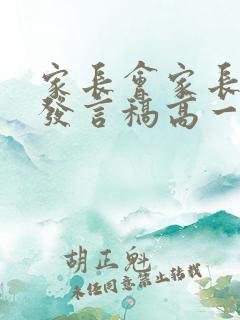 家长會家长
發言稿高一
胡正魁
未经同意禁止转载